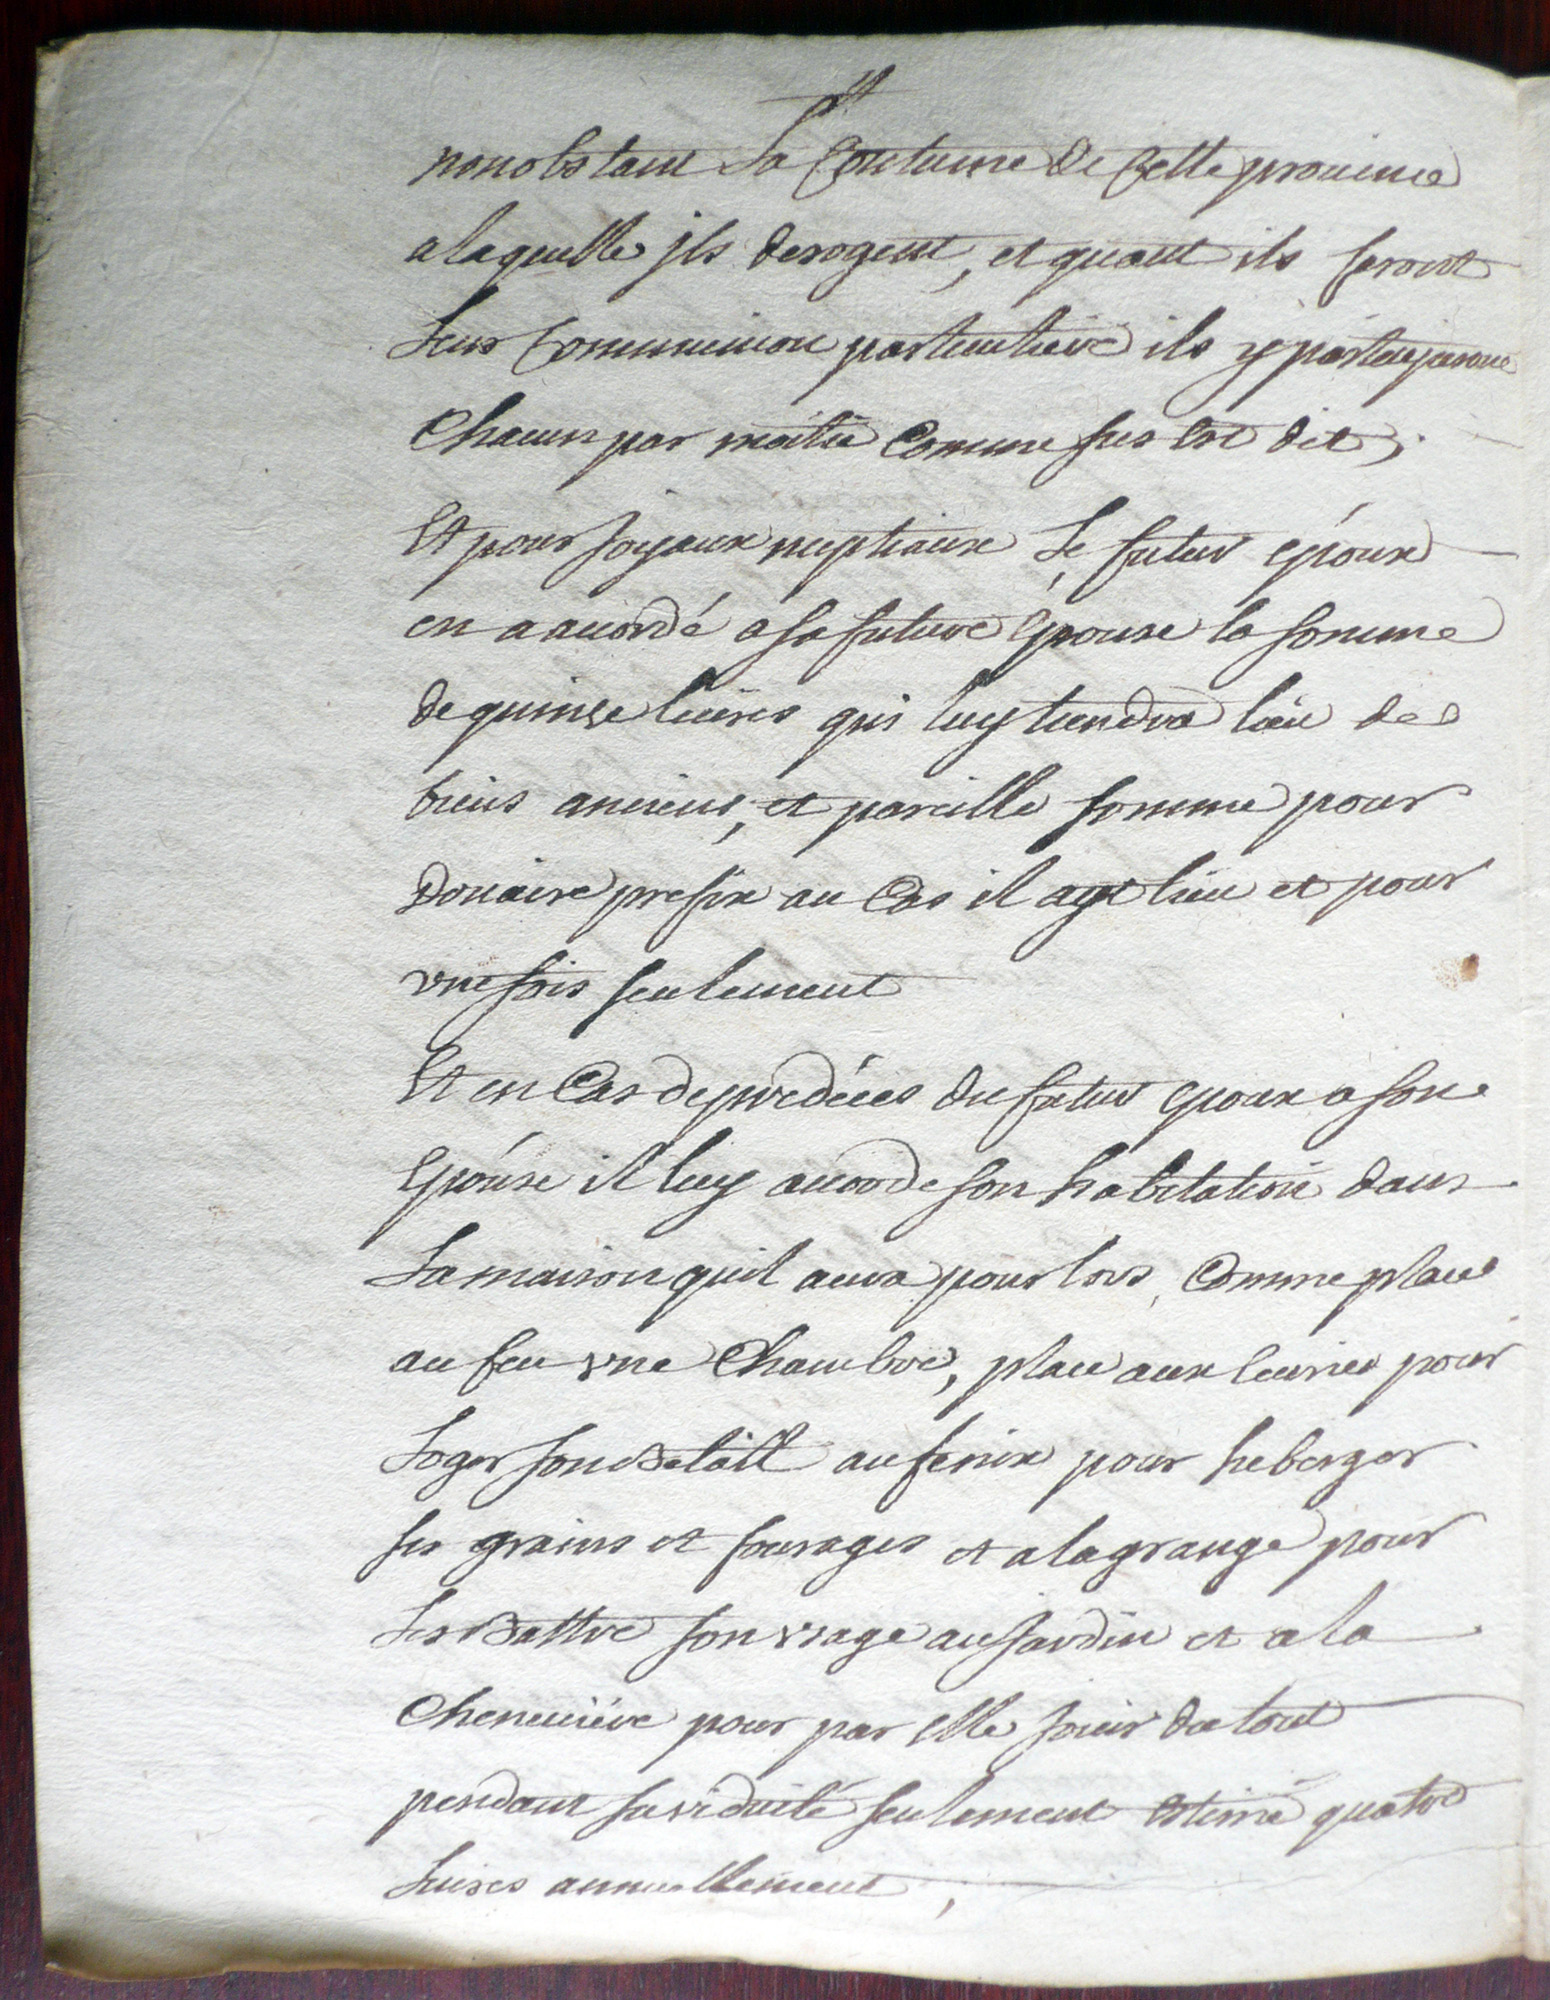 nonobstant La Coutume de Cette prouince
a laquelle jls derogent, et quant ils feront
Leur Communion particuliere ils y partageronte
Chacun par moitié Comme sus Est dit;
Et pour Joyaux nuptiaux Le futur époux
en a accordé a sa future Epouse la somme
de quinze liures qui luy tiendra lieu de
biens anciens, et pareille somme pour
Douaire prefix au Cas il ayt lieu et pour
vne fois seulement
Et en Cas de predéces du futur Epoux a son
Epouse il luy accorde son habitation dans
La maison quil aura pour lors, Comme place
au feu vne Chambre, place aux Ecuries pour
Loger son Betail au fenix pour heberger
ses grains et fourages et a la grange pour
Les Battre son vsage au Jardin et a la
Cheneuiere pour par Elle Jouir du tout
pendant sa viduité seulement Estimé quatre
Liures annuellement,